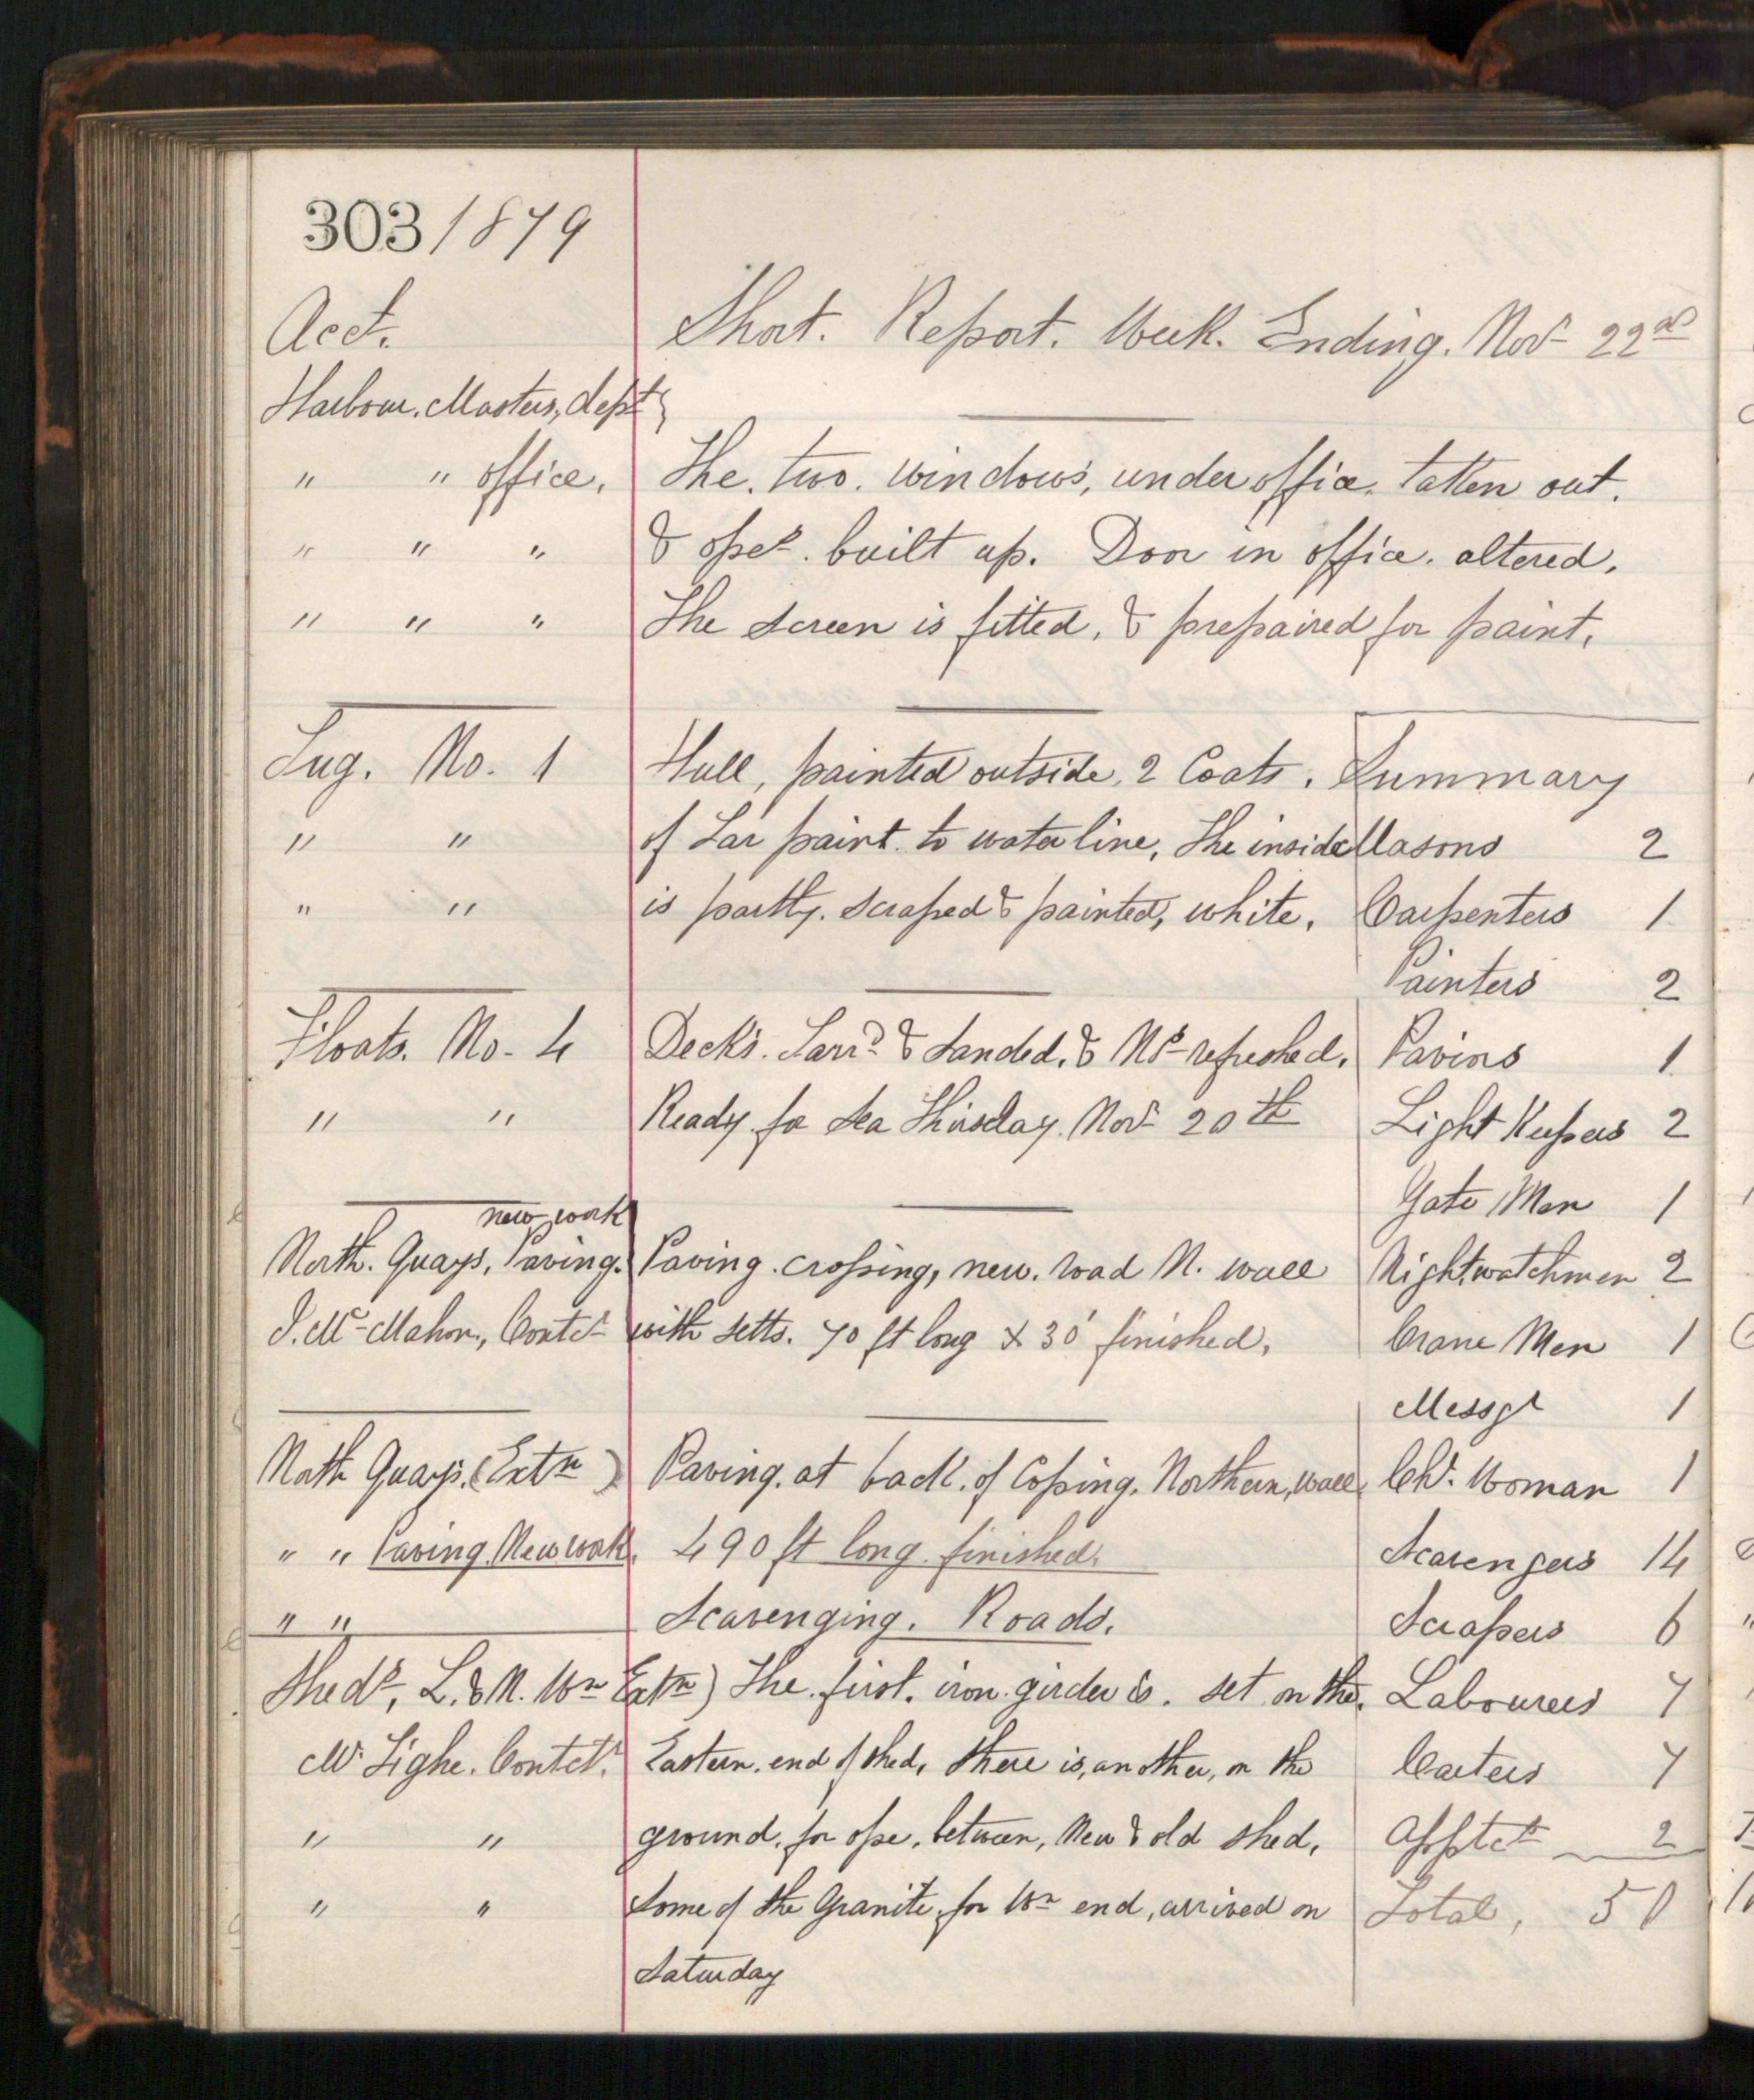 303 / 1879
Acct. Short. Report. Week. Ending. Novr 22nd
Harbour. Masters, dept
" " office, The. two. windows, under office, taken out.
" " " & opes. built up. Door in office. altered.
" " " The screen is fitted, & prepaired for paint,
Tug. No. 1 Hull, painted outside, 2 Coats. Summary
" " of Tar paint. to water line, The inside Masons 2
" " is partly. scraped & painted, white, Carpenters 1
Painters 2
Floats. No. 4 Decks. Tarrd & Sanded, & Nos refreshed. Paviors 1
" " Ready for Sea Thirsday. Novr 20th Light Keepers 2
Gate Men 1
new work
North. Quays, Paving. Paving. crossing, new. road N. wall Nightwatchmen 2
J. Mc Mahon, Contr with setts. 70 ft long x 30' finished, Crane Men 1
Messgr 1
North Quays. (Extn) Paving. at back. of Coping. Northern, wall, Chr. Woman 1
" " Paving. New work. 490 ft long. finished. Scavengers 14
" " Scavenging. Roads. Scrapers 6
Sheds, L. & N. Wn Extn) The. first. iron. girder is. set on the. Labourers 7
Mr Tighe. Contctr. Eastern. end of shed, there is, another, on the Carters 7
" " ground. for ope, between, New & old shed, Apptcs 2
" " Some of the Granite, for Wn end, arrived on Total, 50
Saturday